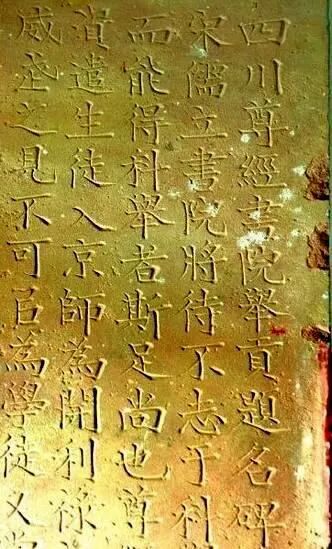 四川尊經書院舉貢題名碑
宋儒立書院將待不志于科
而能得科舉者斯足尚也尊
省遣生徒入京師為開利祿
威之見不可㠯為學徒又